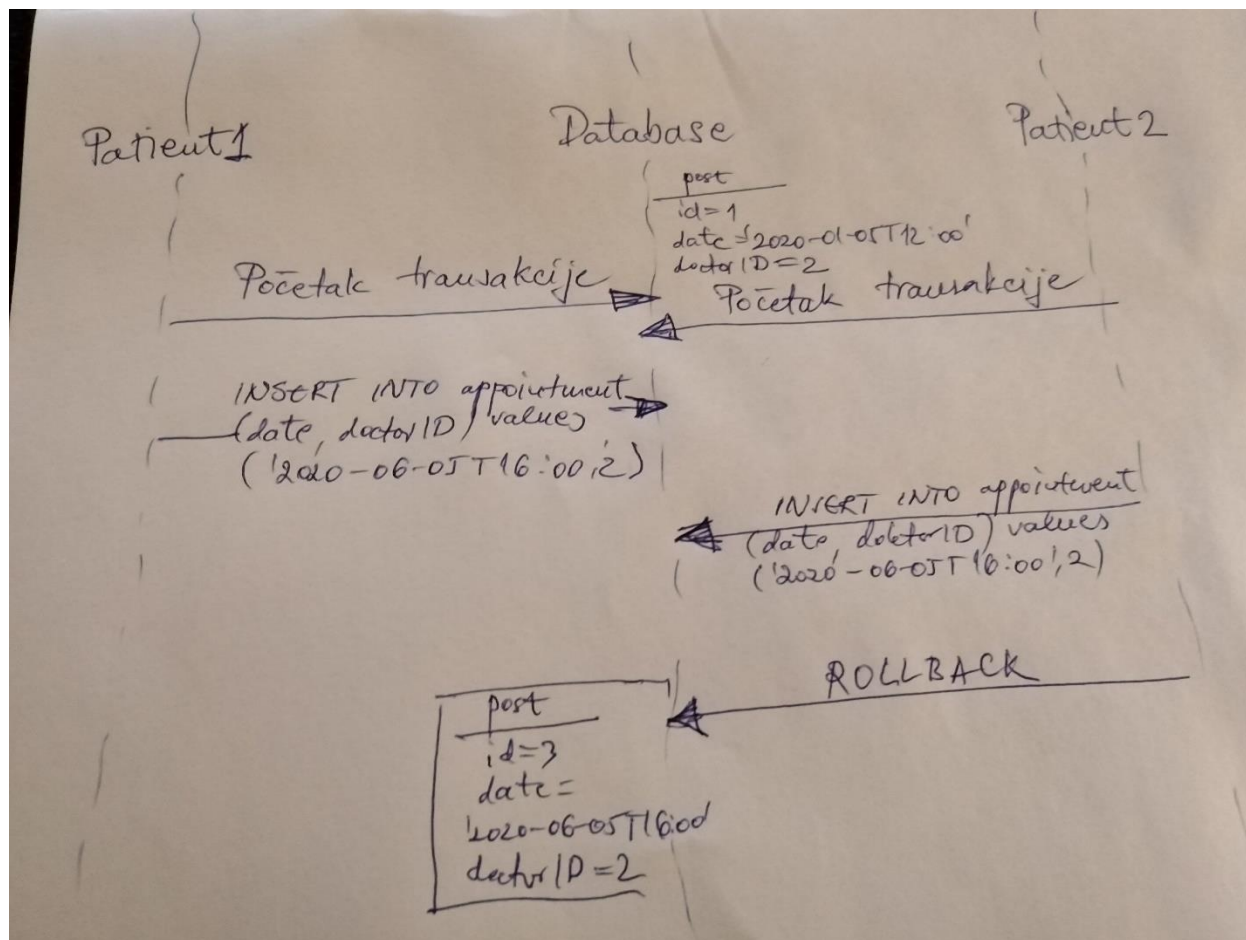 Patient1
Database
Patient 2
post
id=1
date='2020-01-05T12:00'
doctorID=2
Početak transakcije
Početak transakcije
INSERT INTO appointment
(date, doctorID) values
('2020-06-05T16:00,2)
INSERT INTO appointment
(date, doktorID) values
('2020-06-05T16:00',2)
ROLLBACK
post
id=3
date=
'2020-06-05T16:00'
doctorID=2